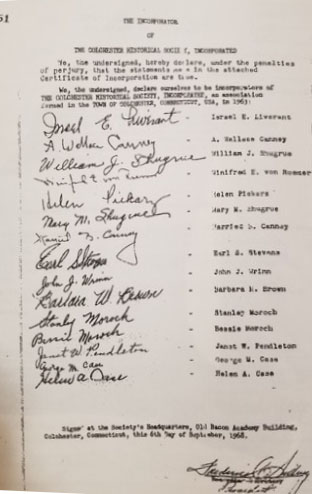 51
THE INCORPORATOR
OF
THE COLCHESTER HISTORICAL SOCIETY, INCORPORATED
We, the undersigned, hereby declare, under the penalties
of perjury, that the statements in the attached
Certificate of Incorporation are true.
We, the undersigned, declare ourselves to be incorporators of
THE COLCHESTER HISTORICAL SOCIETY, INCORPORATED, an association
formed in the TOWN OF COLCHESTER, CONNECTICUT, USA, in 1963:
Israel E. Liverant - Israel E. Liverant
A Wallace Canney - A. Wallace Canney
William J. Shugrue - William J. Shugrue
Winifred E. von - Winifred E. von
Helen Pickarz - Helen
Mary M. Shugrue - Mary M. Shugrue
Harriet B. Canney - Harriet B. Canney
Earl Stevens - Earl S. Stevens
John J. Wrinn - John J. Wrinn
Barbara W. Brown - Barbara W. Brown
Stanley Moroch - Stanley Moroch
Bessie Moroch - Bessie Moroch
Janet W. Pendleton - Janet W. Pendleton
George M. Case - George M. Case
Helen A. Case - Helen A. Case
Signed at the Society's Headquarters, Old Bacon Academy Building,
Colchester, Connecticut, this 6th Day of September, 1968.
President